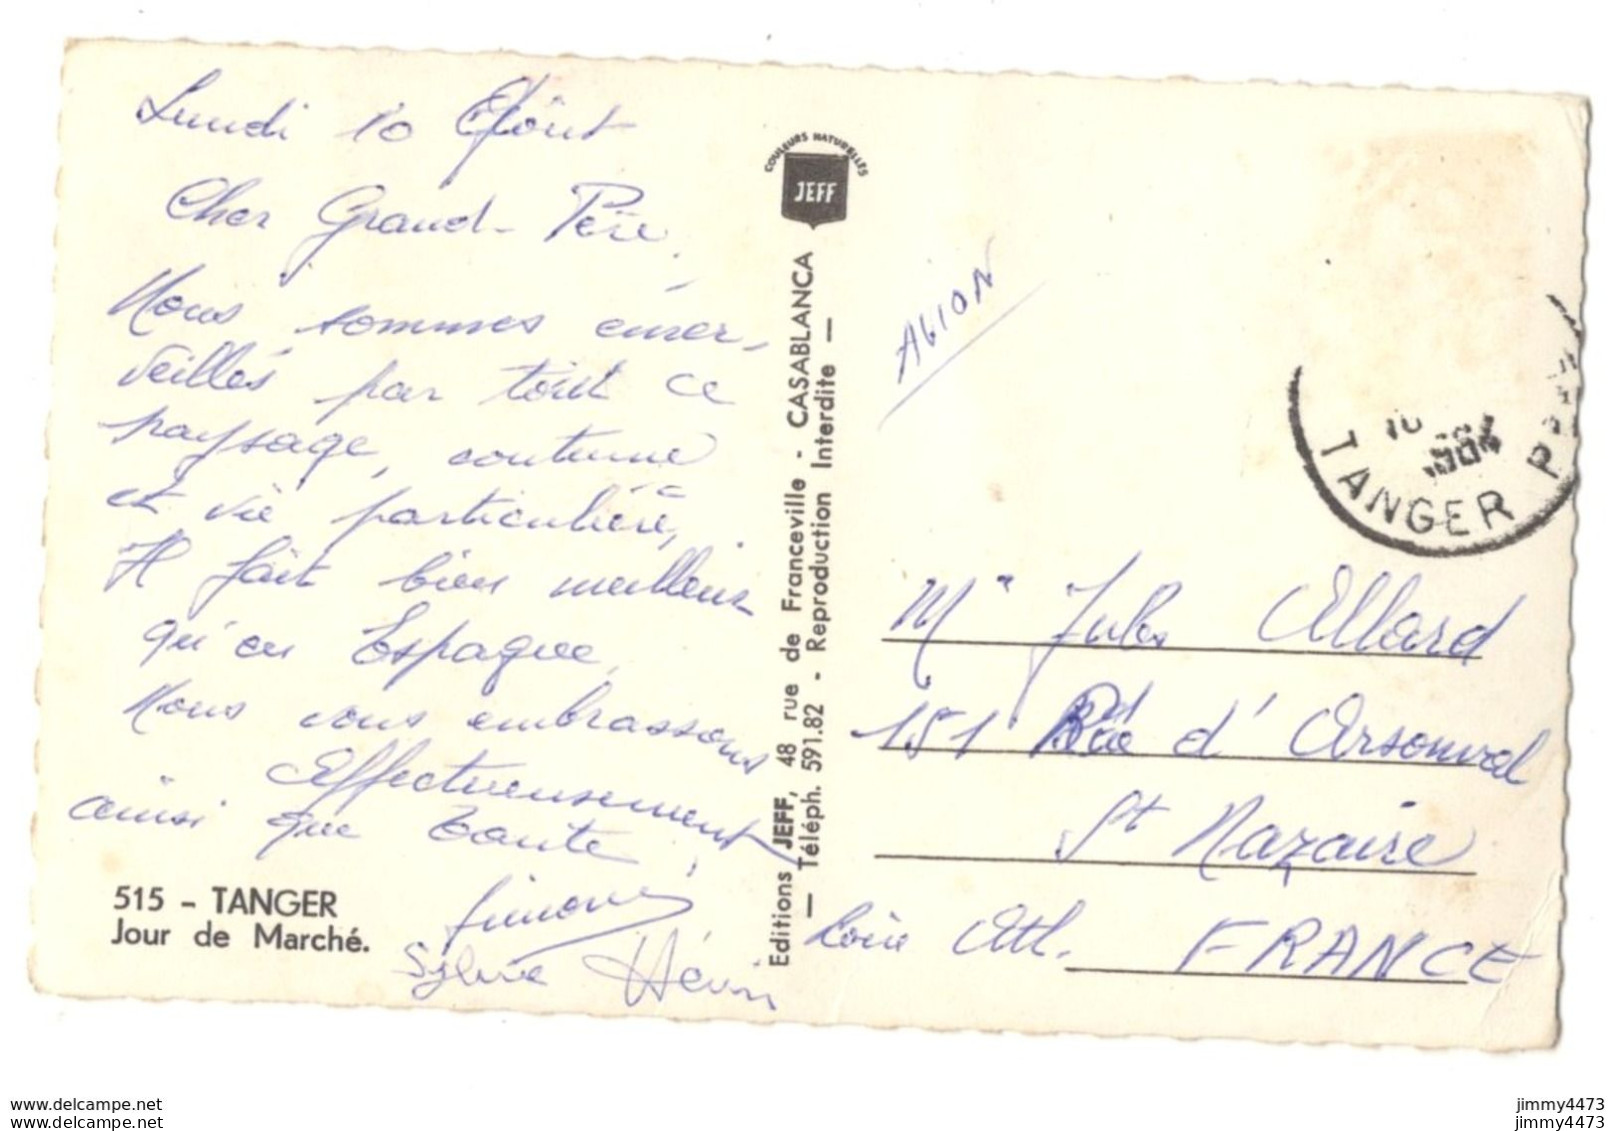 Lundi 10 Août
Cher Grand-Père,
Nous sommes émer-
veillés par tout ce
paysage, coutume
et vie particulière,
Il fait bien meilleur
qu'en Espagne,
Nous vous embrassons
Affectueusement
ainsi que Tante,
Simone
Sylvie Hévin
515 - TANGER
Jour de Marché.
COULEURS NATURELLES
JEFF
Editions JEFF, 48 rue de Franceville - CASABLANCA
— Téléph. 591.82 - Reproduction Interdite —
AVION
TANGER P
10
1964
Mr Jules Allard
151 Bd d'Arsonval
St Nazaire
Loire Atl. FRANCE
jimmy4473
jimmy4473
www.delcampe.net
www.delcampe.net